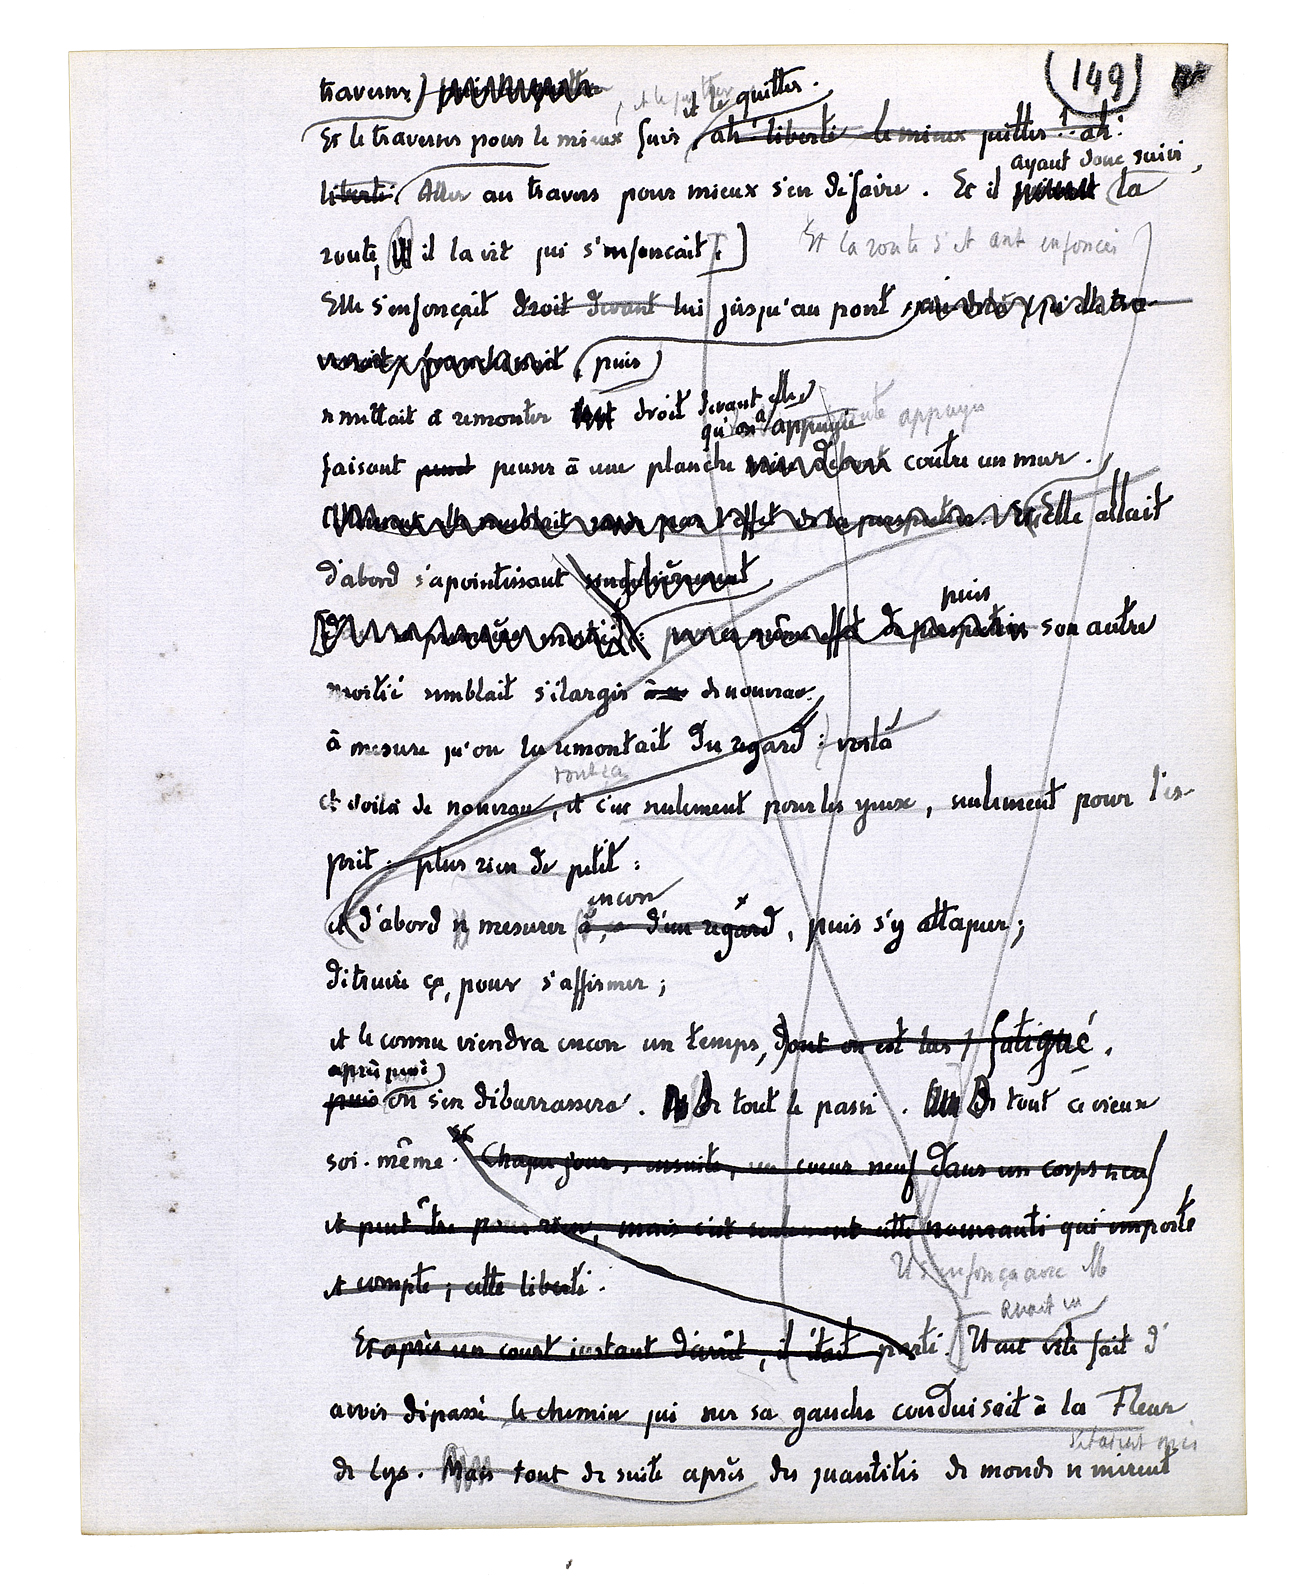 (149)
traverser)
et le quitter.
Et le traverser pour le mieux fuir, ah! liberté le mieux quitter! ah!
ayant donc suivi,
liberté. Aller au travers pour mieux s'en défaire. Et il la
route, il la vit qui s'enfonçait.]
Et la route s'étant enfoncée
Elle s'enfonçait droit devant lui jusqu'au pont
franchissait, puis
se mettait à remonter tout droit devant elle,
qu'on a appuyée appuyée
faisant penser à une planche mise debout contre un mur.
semblait par l'effet de la perspective. Elle allait
d'abord s'apointissant singulièrement
puis
première moitié: par ce même effet de perspective son autre
moitié semblait s'élargir de nouveau,
à mesure qu'on la remontait du regard: voilà
tout ça
et voilà de nouveau, et c'est seulement pour les yeux, seulement pour l'es-
prit. plus rien de petit:
encore
et d'abord se mesurer à, d'un regard, puis s'y attaquer;
détruire ça, pour s'affirmer;
et le connu viendra encore un temps, dont on est las / fatigué.
après quoi
puis on s'en débarrassera. De tout le passé. De tout ce vieux
soi-même. Chaque jour, ensuite, un cœur neuf dans un corps neuf
et peut-être pour rien, mais c'est seulement cette nouveauté qui importe
et compte; cette liberté.
Il s'enfonça avec
Avait eu
Et après un court instant d'arrêt, il était parti. Il eut vite fait d'
avoir dépassé le chemin qui sur sa gauche conduisait à la Fleur
s'étaient mis
de Lys. Mais tout de suite après des quantités de monde se mirent